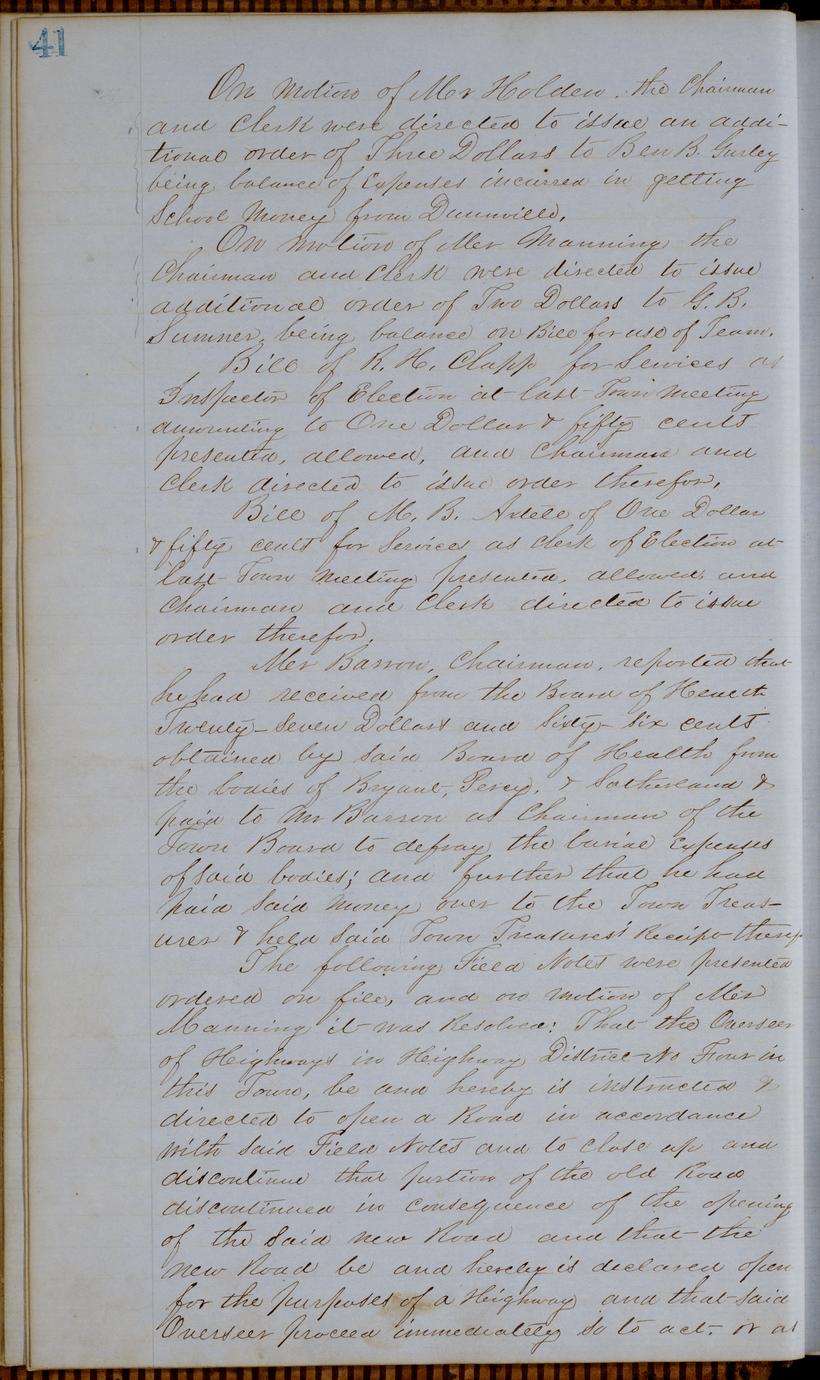 41
On motion of Mr Holden. the Chairman
and Clerk were directed to issue an addi-
tional order of Three Dollars to Ben B. Gurley
being balance of Expenses incurred in getting
School Money from Dunnville.
On motion of Mr Manning the
Chairman and Clerk were directed to issue
additional order of Two Dollars to G. B.
Sumner, being balance on Bill for use of Team.
Bill of R. H. Clapp for Services as
Inspector of Election at last Town Meeting
amounting to One Dollar & fifty cents
presented, allowed, and Chairman and
Clerk directed to issue order therefor.
Bill of M. B. Axtell of One Dollar
& fifty cents for Services as Clerk of Election at
last Town Meeting presented, allowed, and
Chairman and Clerk directed to issue
order therefor.
Mr Barron, Chairman, reported that
he had received from the Board of Health
Twenty-Seven Dollars and Sixty-six cents
obtained by said Board of Health from
the bodies of Bryant, Percy, & Satherland &
paid to Mr Barron as Chairman of the
Town Board to defray the burial Expenses
of said bodies; and further that he had
paid said Money over to the Town Treas-
urer & held said Town Treasures' Receipt therefor
The following Field Notes were presented
ordered on file, and on motion of Mr
Manning it was Resolved: That the Overseer
of Heighways in Heighway District No Four in
this Town, be and hereby is instructed &
directed to open a Road in accordance
with said Field Notes and to close up and
discontinue that portion of the old Road
discontinued in consequence of the opening
of the said new Road and that the
new Road be and hereby is declared open
for the purposes of a Heighway and that said
Overseer proceed immediately so to act. or as